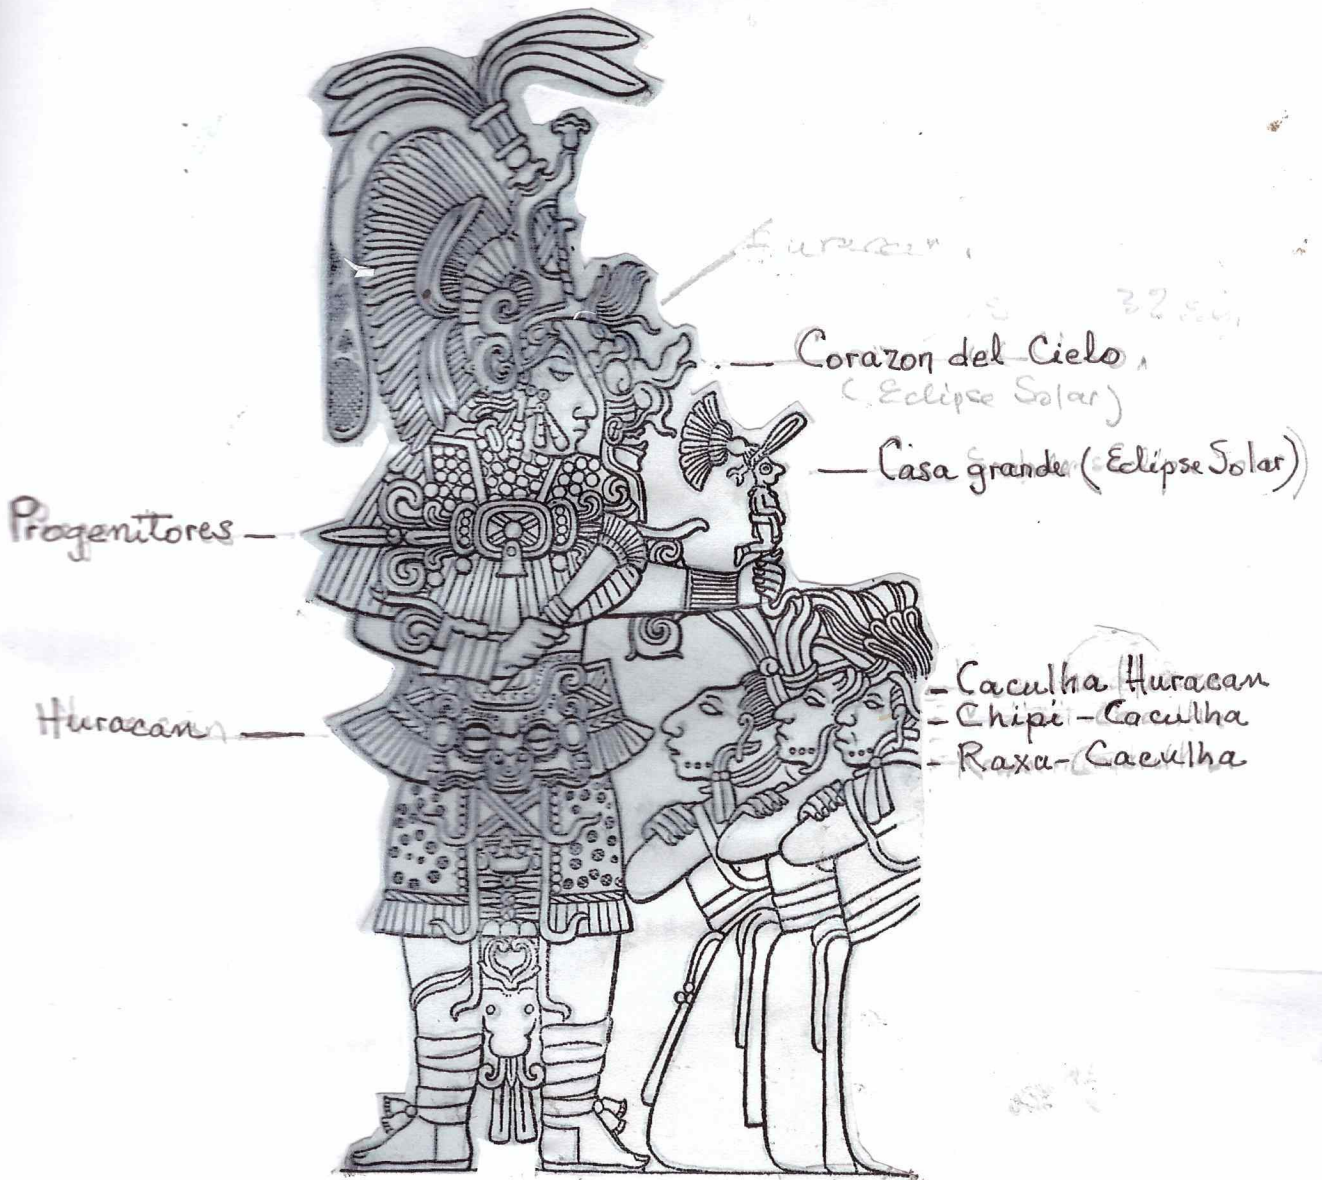 Huracan
Corazon del Cielo
(Eclipse Solar)
Casa grande (Eclipse Solar)
Progenitores
Huracan
- Caculha Huracan
- Chipi-Caculha
- Raxa-Caculha